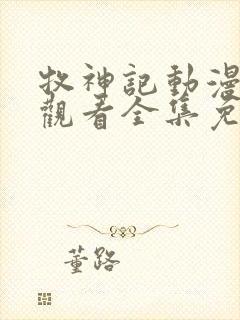 牧神記動漫
觀看全集免
董路